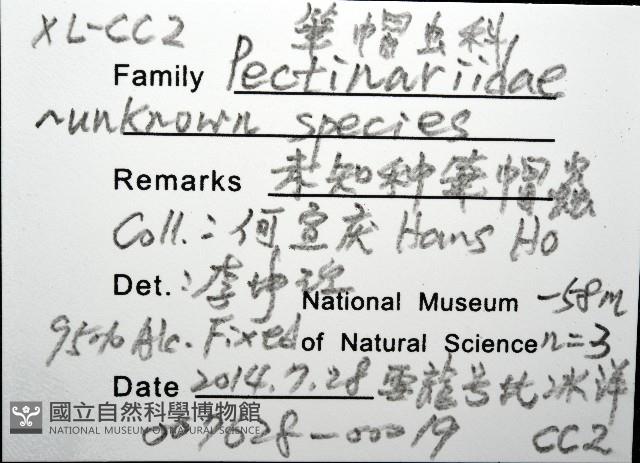 XL-CC2 筆帽虫科
Family Pectinariidae
~unknown species
Remarks 未知种筆帽蟲
Coll.: 何宣庆 Hans Ho
Det.: 李坤瑄
National Museum -58m
95% Alc. Fixed of Natural Science n=3
Date 2014.7.28 雪龍号北冰洋
國立自然科學博物館
NATIONAL MUSEUM OF NATURAL SCIENCE
007028-00019 CC2